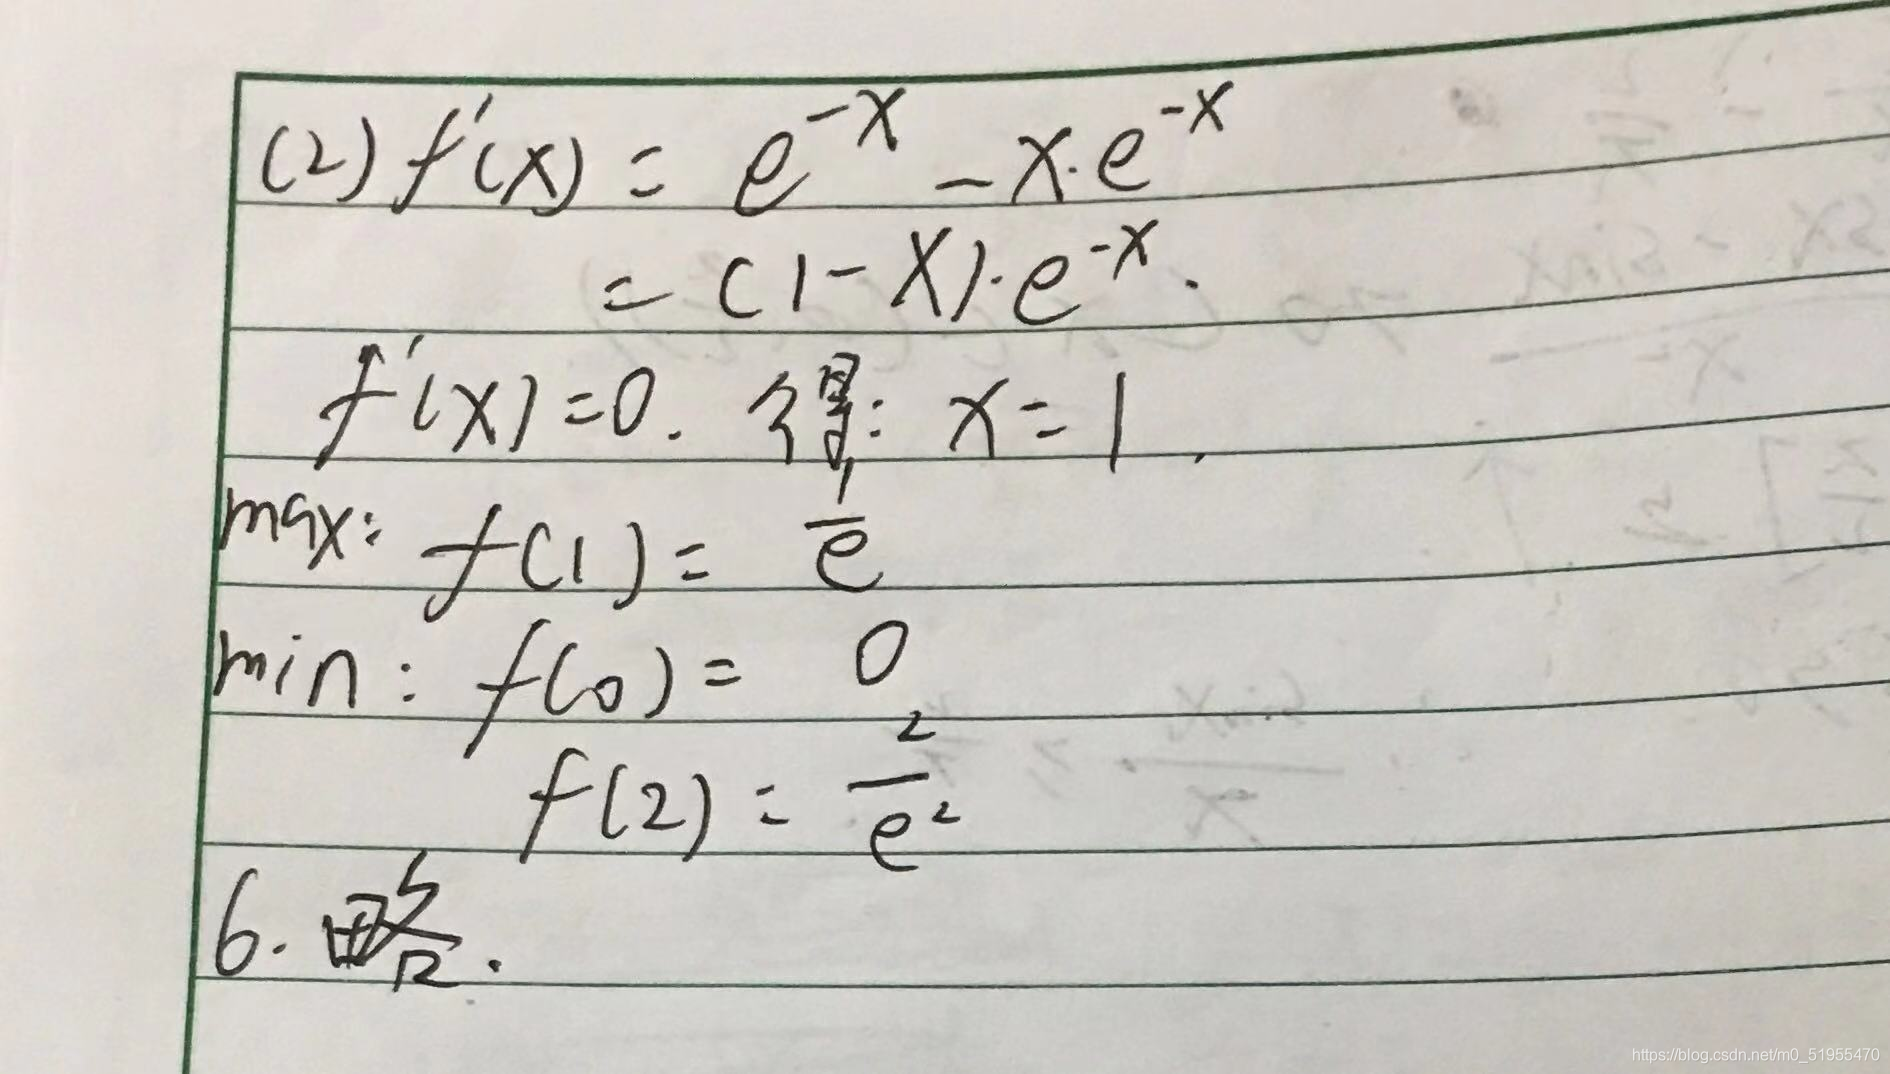 (2) f'(x) = e^{-x} - x·e^{-x}
= (1-x)·e^{-x}.
f'(x)=0. 得: x=1.
max: f(1) = \frac{1}{e}
min: f(0) = 0
f(2) = \frac{2}{e^2}
6. 略.
https://blog.csdn.net/m0_51955470